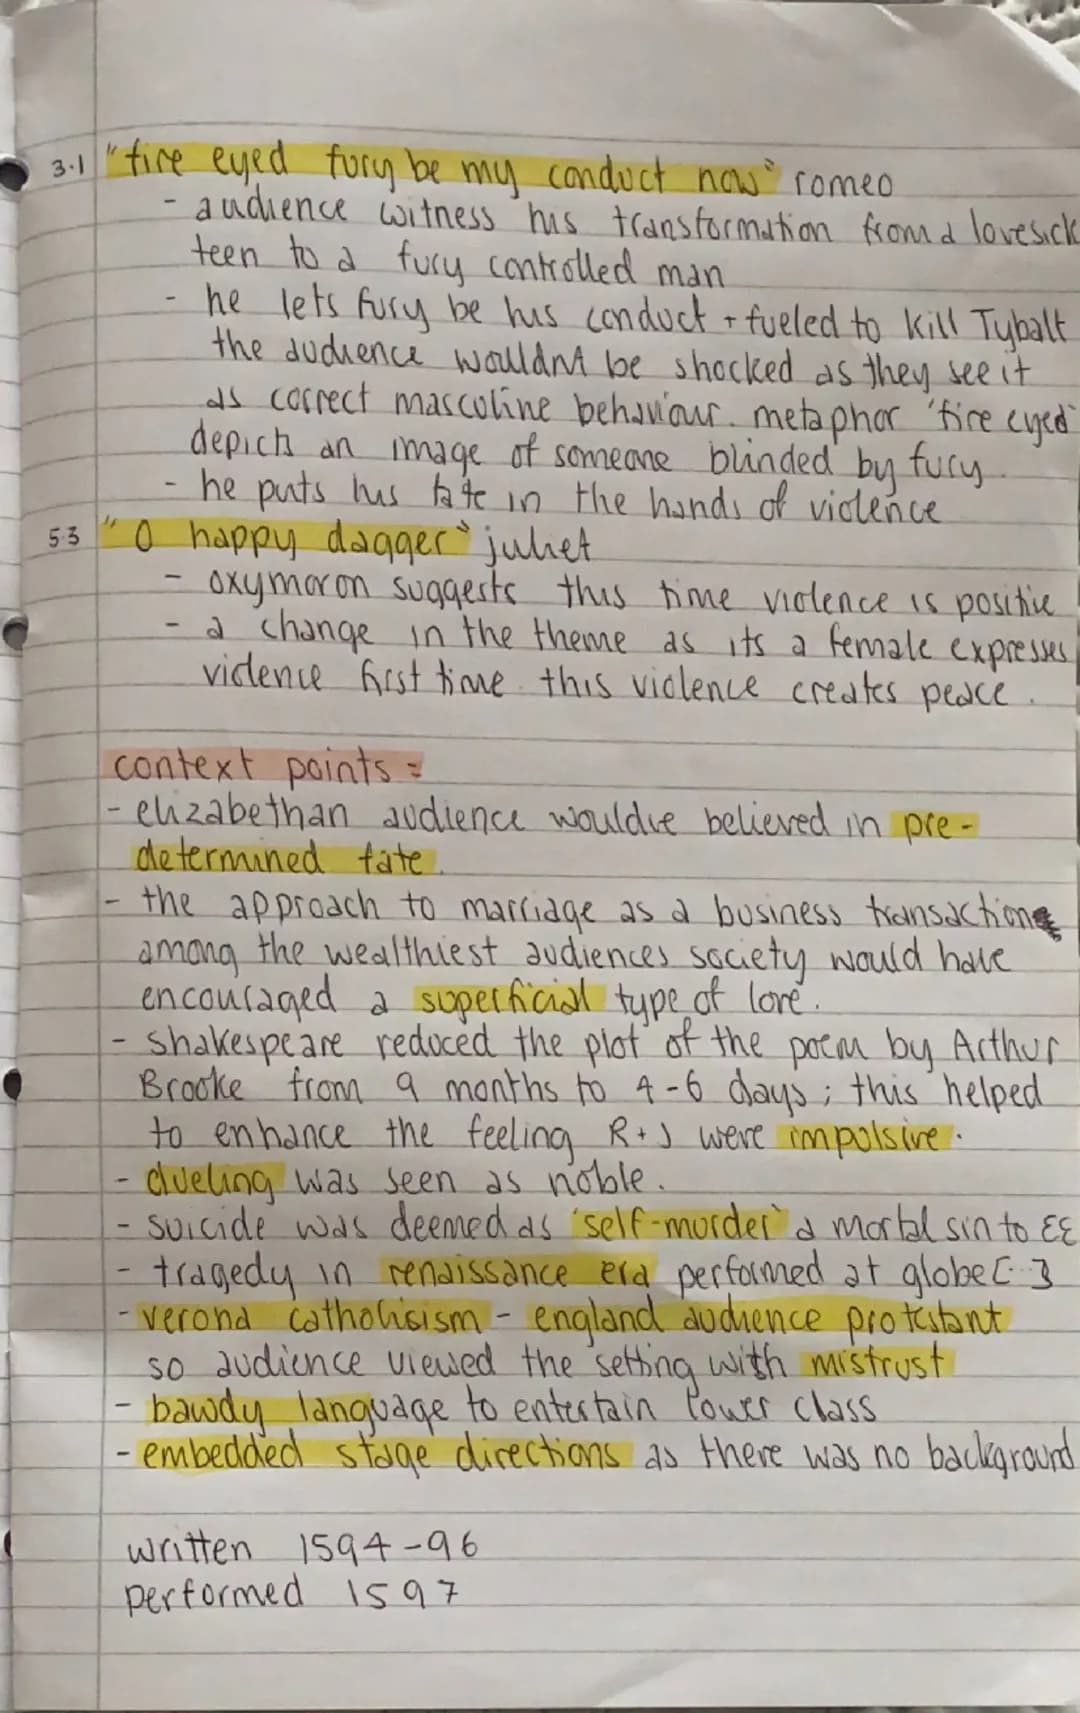 3.1 "fire eyed fury be my conduct now" romeo
- audience witness his transformation from a lovesick
teen to a fury controlled man
- he lets fury be his conduct + fueled to kill Tybalt
the audience wouldnt be shocked as they see it
as correct masculine behaviour. metaphor 'fire eyed'
depicts an image of someone blinded by fury.
- he puts his fate in the hands of violence
5.3 "O happy dagger" juliet
- oxymoron suggests this time violence is positive
- a change in the theme as its a female expresses
violence first time. this violence creates peace.
context points =
- elizabethan audience wouldve believed in pre-
determined fate.
- the approach to marriage as a business transaction
among the wealthiest audiences society would have
encouraged a superficial type of love.
- shakespeare reduced the plot of the poem by Arthur
Brooke from 9 months to 4-6 days; this helped
to enhance the feeling R+J were impulsive.
- dueling was seen as noble.
- suicide was deemed as 'self-murder' a mortal sin to EE
- tragedy in renaissance era performed at globe [...]
- verona catholisism - england audience protestant
so audience viewed the setting with mistrust
- bawdy language to entertain lower class
- embedded stage directions as there was no background
written 1594-96
performed 1597